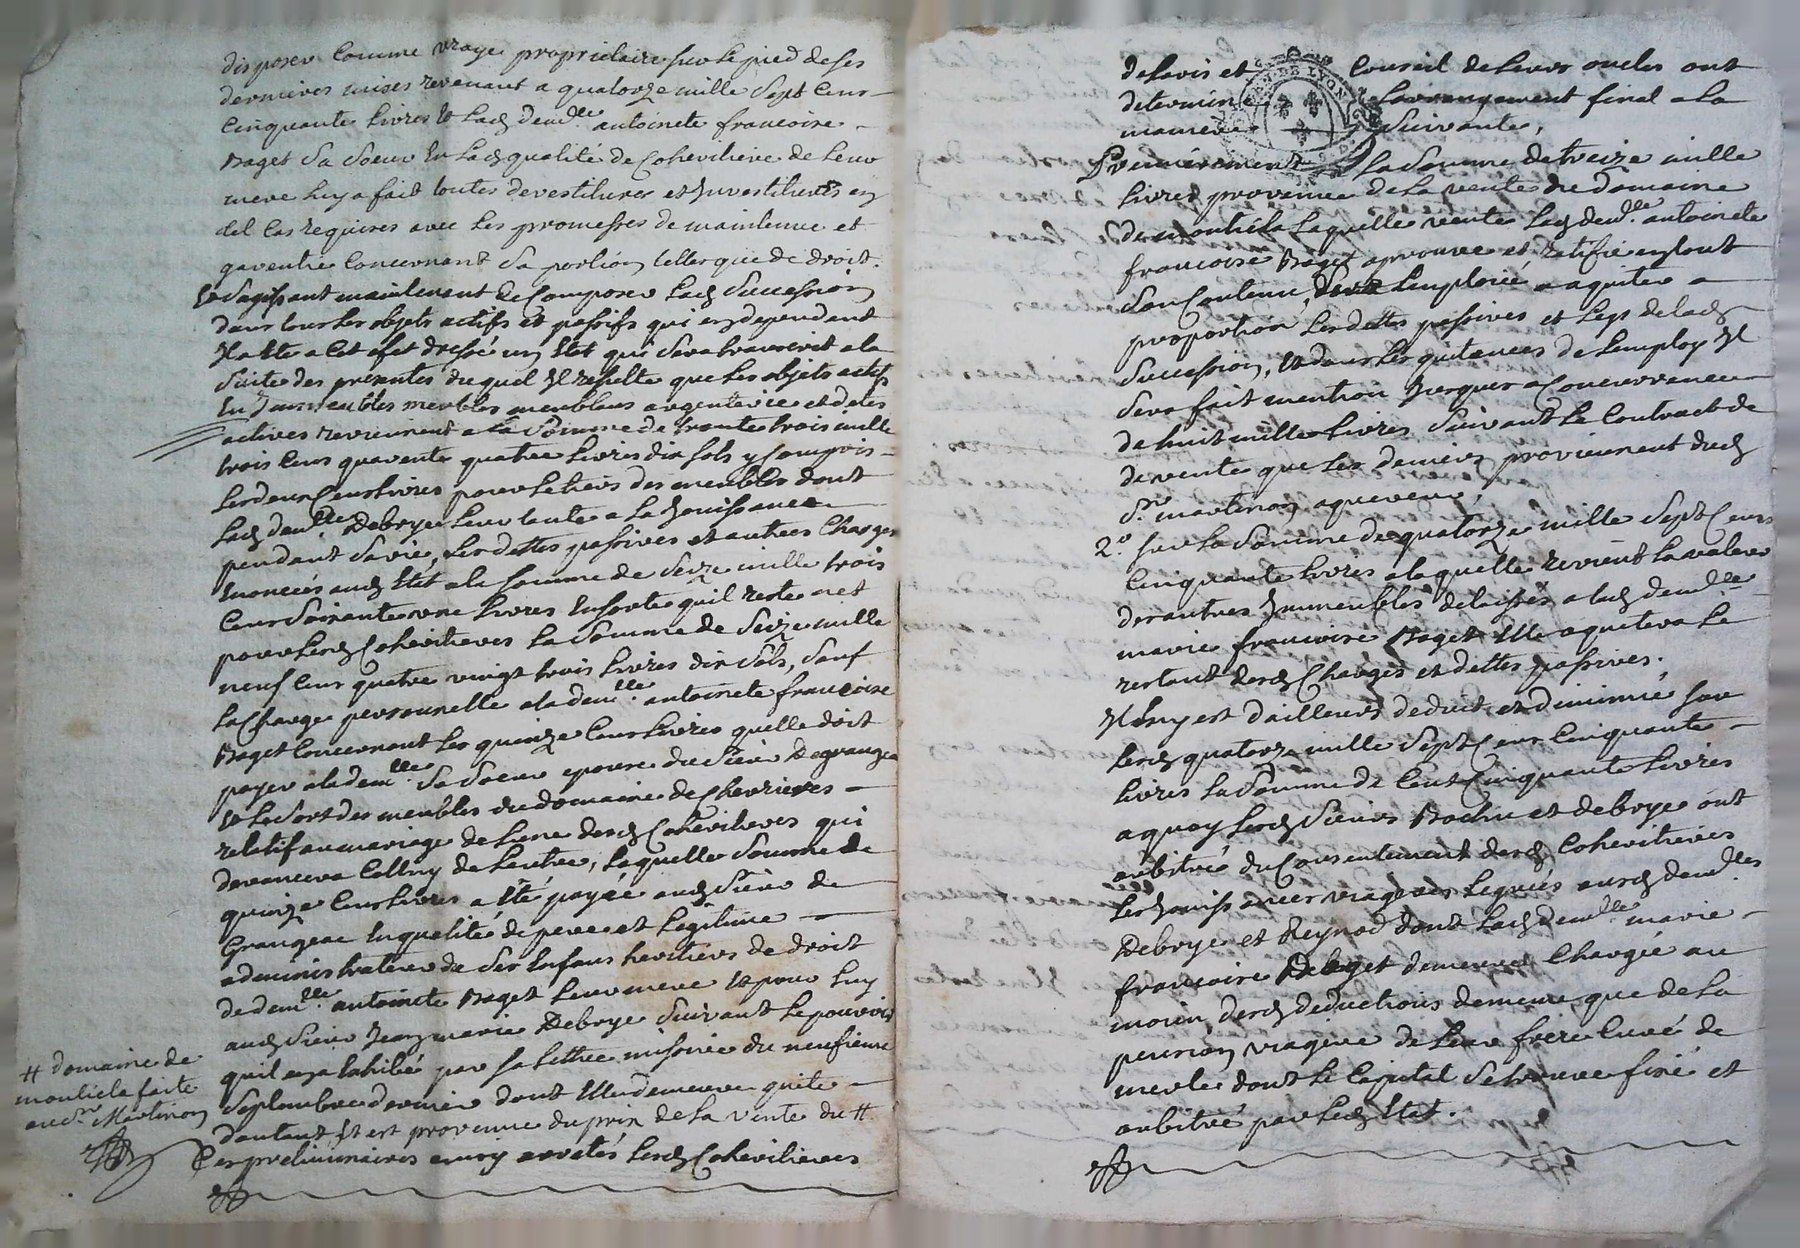 disposer Comme vraye proprietaire sur le pied de ses
dernieres mises revenant a quatorze mille Sept Cens
Cinquante Livres Et Lad. demlle. antoinete francoise
Baget Sa Soeur En Lad. qualité de Coheritiere de Leur
mere Luy a fait toutes devestitures et Investitures en
tel Cas requises avec Les promesses de maintenue et
garentie Concernant Sa portion telles que de droit.
Et Sagissant maintenant de Composer Lad. Succession
dans tous Les objets actifs et passifs qui en dependent
Il a ete a Cet efet dressé un Etat qui Sera transcrit a la
Suite des presentes duquel Il resulte que Les objets actifs
En Immeubles meubles meublans argenterie et detes
actives reviennent a La Somme de trente trois mille
trois Cens quarente quatre Livres dix Sols y Compris
Les deux Cens Livres pour Le tiers des meubles dont
Lad. demlle. Debrye Leur tante a La Jouissance
pendant Sa vie, Les dettes passives et autres Charges
Enoncées aud. Etat a la Somme de Seize mille trois
Cens Soixante une Livres Ensorte quil reste net
pour Lesd. Coheritieres La Somme de Seize mille
neuf Cens quatre vingt trois Livres dix Sols, Sauf
La Charge personnelle a la demlle. antoinete francoise
Baget Concernant Les quinze Cens Livres quelle doit
payer a la demlle. Sa Soeur epouse du Sieur Degrangeac
Et Le Sort des meubles du domaine de Chevrieres
relatif au mariage de Lune desd. Coheritieres qui
devancera Celluy de Lautre, Laquelle Somme de
quinze Cens Livres a été payée aud. Sieur de
Grangeac En qualité de pere et Legitime
administrateur de Ses Enfans heritiers de droit
de demlle. antoinete Baget Leur mere Et pour Luy
aud. Sieur Jean marie Debrye Suivant Le pouvoir
quil en a par Sa Lettre missive du neufieme
Septembre dernier dont Elle demeure quite
dautant Et est provenue du prix de La Vente du #
Ces preliminaires ainsy arretés Lesd. Coheritieres
# domaine de
montiela faite
au Sr. Martinon
de Lavis et Conseil de Leurs oncles ont
determiné Larrangement final a La
maniere Suivante,
Premierement La Somme de treize mille
Livres provenue de La vente du domaine
de montiela Laquelle vente Lad. demlle. antoinete
francoise Baget aprouve et ratifie en tout
Son Contenu, Sera Employée a aquiter a
proportion Les dettes passives et Legs de Lad.
Succession, Et dans Les quitances de Lemploy Il
Sera fait mention Jusques a Concurrence
de huit mille Livres Suivant Le Contract de
de vente que Les deniers proviennent dud.
Sr. martinon aquereur,
2o. Sur La Somme de quatorze mille Sept Cens
Cinquante Livres a laquelle revient La valeur
des autres Immeubles delaissés a lad. demlle.
marie francoise Baget Elle aquitera Le
restant desd. Charges et dettes passives.
Il En est dailleurs deduit et diminué Sur
Lesd. quatorze mille Sept Cens Cinquante
Livres La Somme de Cent Cinquante Livres
a quoy Lesd. Sieurs Bochu et debrye ont
arbitré du Consentement desd. Coheritieres
Les Jouissances viageres Leguées ausd. demlles.
Debrye et Reynod dont Lad. demlle. marie
francoise Baget demeure Chargée au
moien desd. deductions de meme que de La
pension viagere de Leur frere Curé de
merle dont Le Capital Se trouve fixé et
arbitré par Led. Etat.